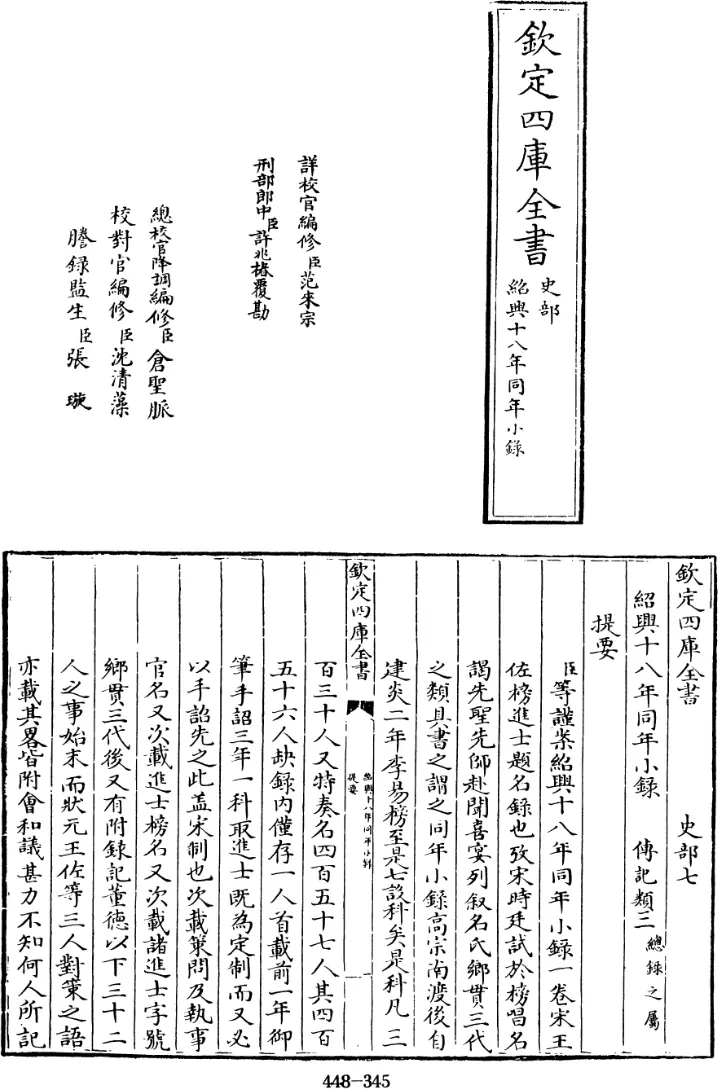 欽定四庫全書
史部
紹興十八年同年小錄
詳校官編修臣范來宗
刑部郎中臣許兆椿覆勘
總校官降調編修臣倉聖脈
校對官編修臣沈清藻
謄錄監生臣張璇
欽定四庫全書 史部七
紹興十八年同年小錄 傳記類三 總錄之屬
提要
臣等謹案紹興十八年同年小錄一卷宋王
佐榜進士題名錄也攷宋時廷試於榜唱名
謁先聖先師赴聞喜宴列叙名氏鄉貫三代
之類具書之謂之同年小錄高宗南渡後自
建炎二年李易榜至是七設科矣是科凡三
欽定四庫全書
紹興十八年同年小錄
提要
百三十人又特奏名四百五十七人其四百
五十六人缺錄内僅存一人首載前一年御
筆手詔三年一科取進士既為定制而又必
以手詔先之此盖宋制也次載策問及執事
官名又次載進士榜名又次載諸進士字號
鄉貫三代後又有附錄記董德以下三十二
人之事始末而狀元王佐等三人對策之語
亦載其畧皆附會和議甚力不知何人所記
448-345